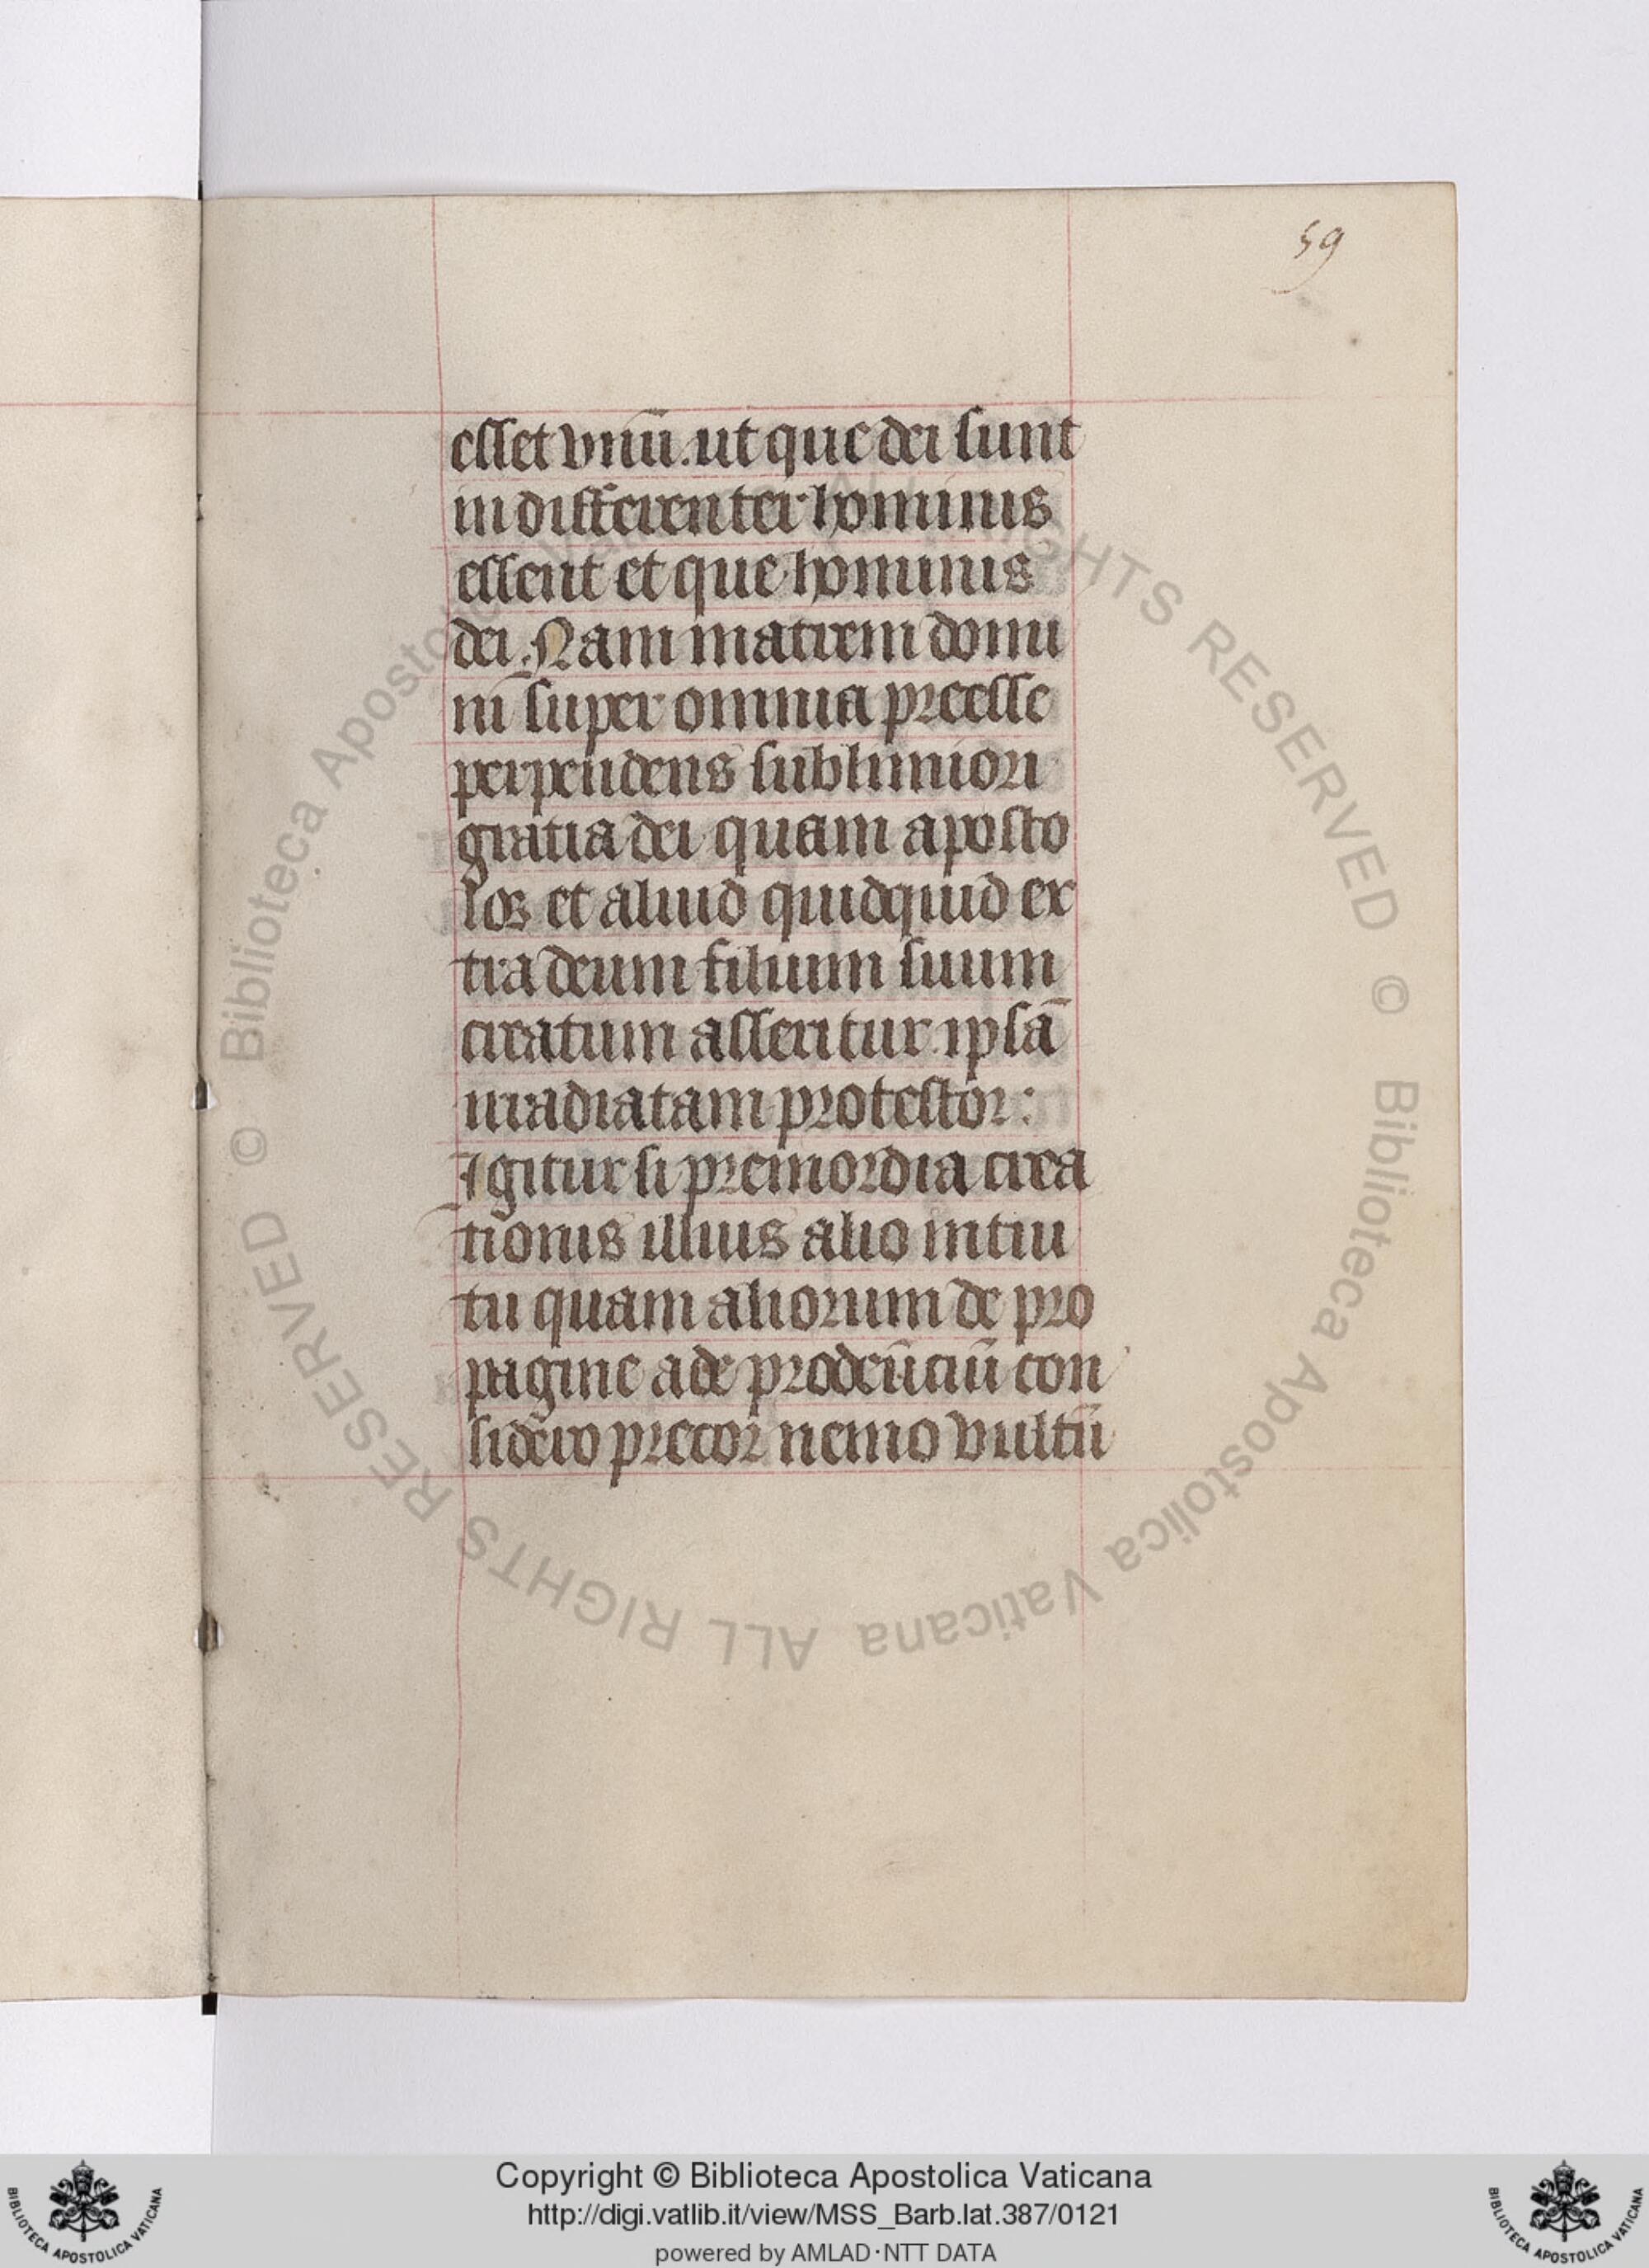 59
esset vnū. ut que dei sunt
indifferenter hominis
essent et que hominis
dei. Nam matrem domi
nī super omnia preesse
perpendens sublimiori
gratia dei quam aposto
los et aliud quidquid ex
tra deum filium suum
creatum asseritur. ipsā
irradiatam protestor:
Igitur si premordia crea
tionis illius alio intui
tu quam aliorum de pro
pagine ade prodeūtiū con
sidero precor nemo vultū
© Biblioteca Apostolica Vaticana ALL RIGHTS RESERVED © Biblioteca Apostolica Vaticana ALL RIGHTS RESERVED
Copyright © Biblioteca Apostolica Vaticana
http://digi.vatlib.it/view/MSS_Barb.lat.387/0121
powered by AMLAD·NTT DATA
BIBLIOTECA APOSTOLICA VATICANA
BIBLIOTECA APOSTOLICA VATICANA